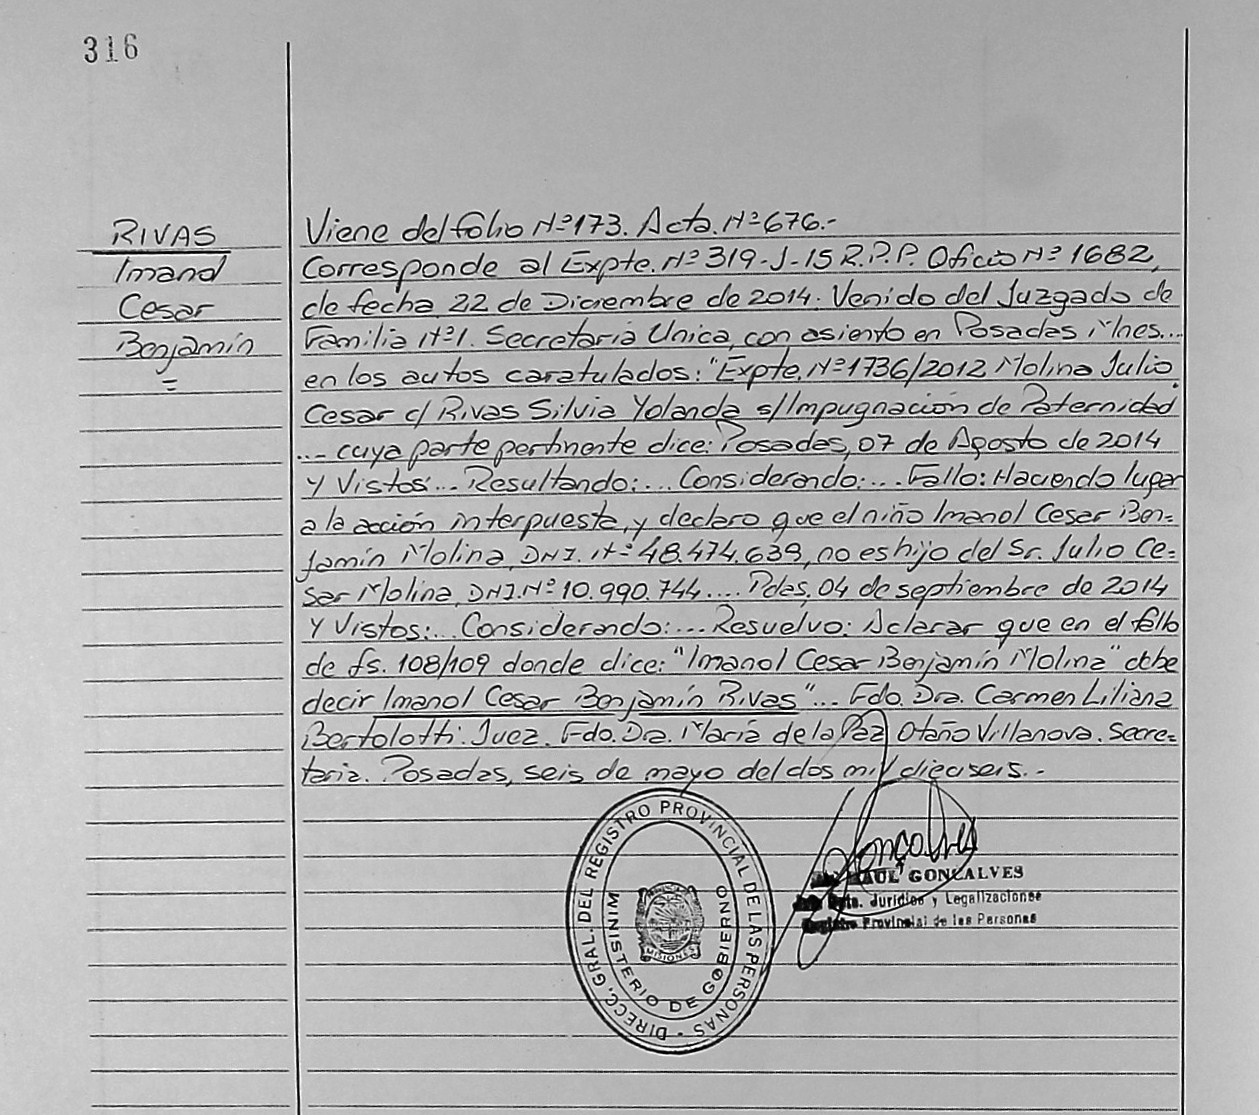 316
RIVAS
Imanol
Cesar
Benjamín
=
Viene del folio Nº 173. Acta. Nº 676.-
Corresponde al Expte. Nº 319-J-15 R.P.P. Oficio Nº 1682,
de fecha 22 de Diciembre de 2014. Venido del Juzgado de
Familia Nº 1. Secretaría Unica, con asiento en Posadas Mnes...
en los autos caratulados: "Expte. Nº 1736/2012 Molina Julio
Cesar c/ Rivas Silvia Yolanda s/Impugnación de Paternidad
... cuya parte pertinente dice: Posadas, 07 de Agosto de 2014
Y Vistos:... Resultando:... Considerando:... Fallo: Haciendo lugar
a la acción interpuesta, y declaro que el niño Imanol Cesar Ben=
jamín Molina, DNI. Nº 48.474.639, no es hijo del Sr. Julio Ce=
sar Molina, DNI. Nº 10.990.744.... Pdas, 04 de septiembre de 2014
Y Vistos:... Considerando:... Resuelvo: Aclarar que en el fallo
de fs. 108/109 donde dice: "Imanol Cesar Benjamín Molina" debe
decir Imanol Cesar Benjamín Rivas"... Fdo. Dra. Carmen Liliana
Bertolotti: Juez. Fdo. Dra. María de la Paz Otaño Villanova. Secre=
taria. Posadas, seis de mayo del dos mil dieciseis.-
DIRECC. GRAL. DEL REGISTRO PROVINCIAL DE LAS PERSONAS -
MINISTERIO DE GOBIERNO
MISIONES
Goncalves
RAUL GONCALVES
Dpto. Jurídico y Legalizaciones
Registro Provincial de las Personas